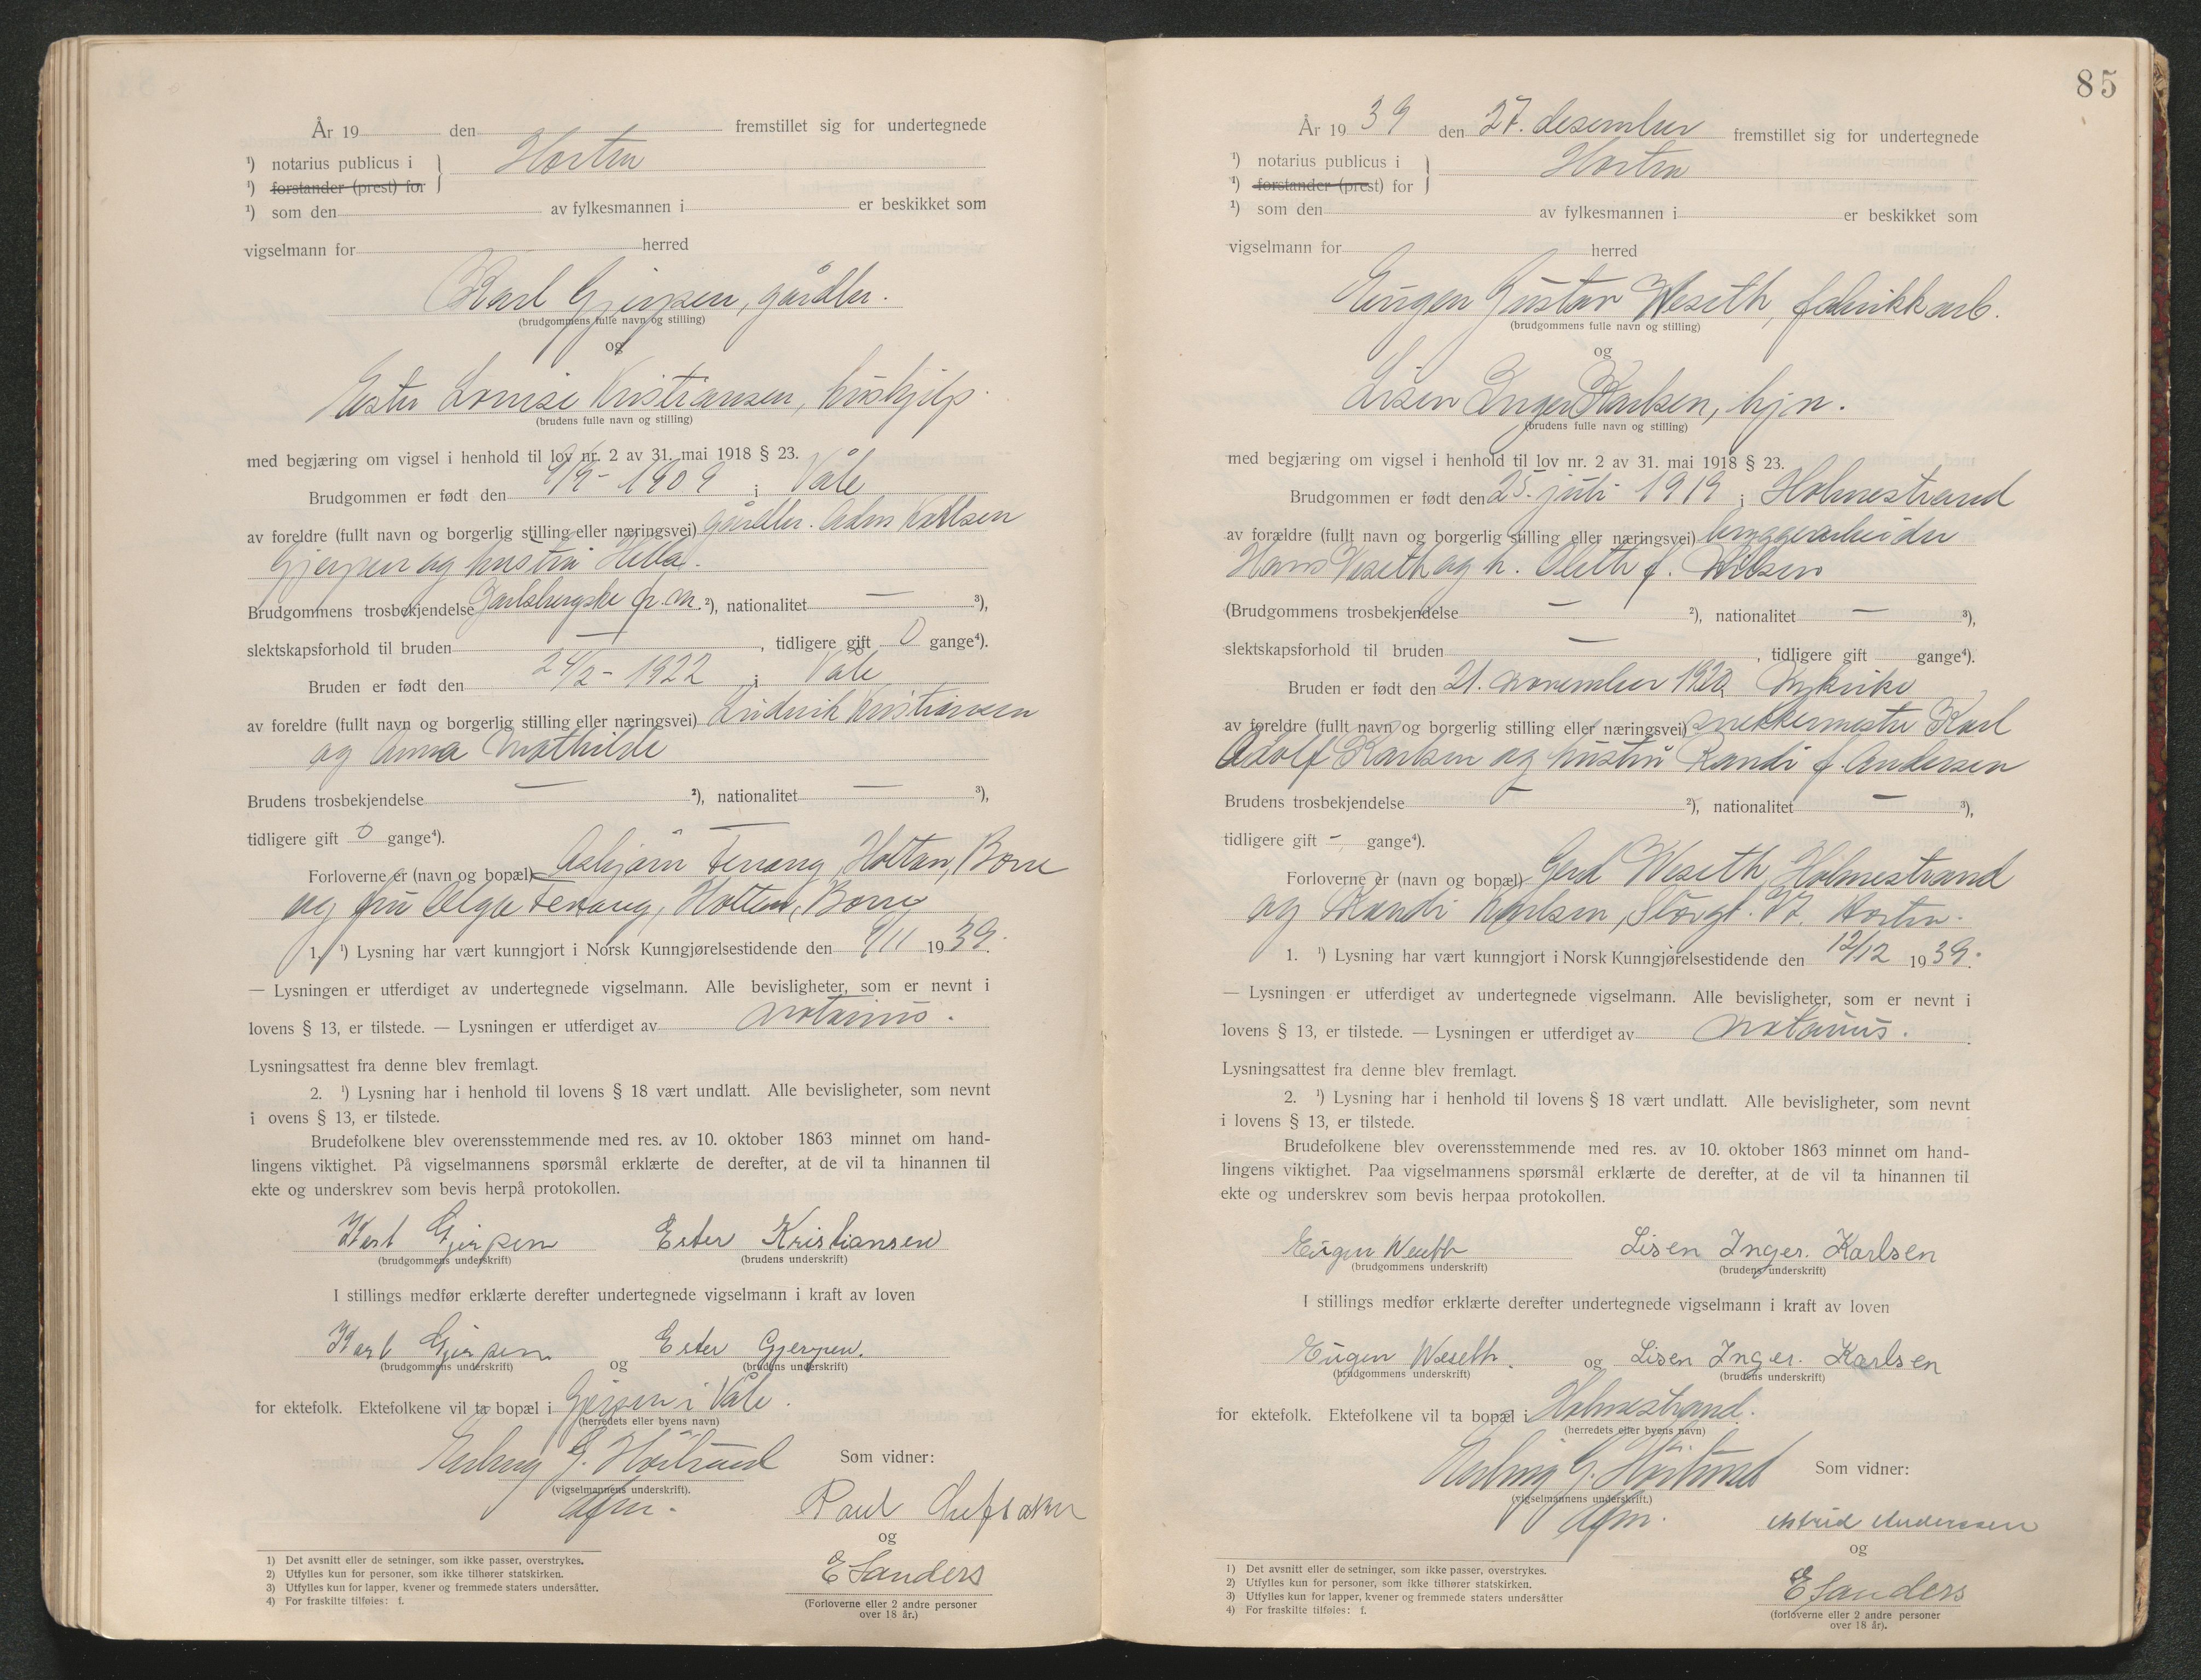 År 19 den fremstillet sig for undertegnede
¹) notarius publicus i } Horten
¹) forstander (prest) for
¹) som den av fylkesmannen i er beskikket som
vigselmann for herred
Karl Gjerpen, gårdbr.
(brudgommens fulle navn og stilling)
og
Ester Lovise Kristiansen, hushjelp.
(brudens fulle navn og stilling)
med begjæring om vigsel i henhold til lov nr. 2 av 31. mai 1918 § 23.
Brudgommen er født den 9/9 - 1909 i Våle
av foreldre (fullt navn og borgerlig stilling eller næringsvei) gårdbr. Adm Karlsen
Gjerpen og hustru Hilda.
Brudgommens trosbekjendelse Jarlsbergske fr.m. ²), nationalitet — ³),
slektskapsforhold til bruden — , tidligere gift 0 gange⁴).
Bruden er født den 24/2 - 1922 i Våle
av foreldre (fullt navn og borgerlig stilling eller næringsvei) Kristiansen
og Anna Mathilde
Brudens trosbekjendelse — ²), nationalitet — ³),
tidligere gift 0 gange⁴). —
Forloverne er (navn og bopæl) Asbjørn Fevang, Holtan, Borre
og fru Olga Fevang, Holtan, Borre
1. ¹) Lysning har vært kunngjort i Norsk Kunngjørelsestidende den 9/11 1939.
— Lysningen er utferdiget av undertegnede vigselmann. Alle bevisligheter, som er nevnt i
lovens § 13, er tilstede. — Lysningen er utferdiget av notarius.
Lysningsattest fra denne blev fremlagt.
2. ¹) Lysning har i henhold til lovens § 18 vært undlatt. Alle bevisligheter, som nevnt
i ovens § 13, er tilstede.
Brudefolkene blev overensstemmende med res. av 10. oktober 1863 minnet om hand-
lingens viktighet. På vigselmannens spørsmål erklærte de derefter, at de vil ta hinannen til
ekte og underskrev som bevis herpå protokollen.
Karl Gjerpen Ester Kristiansen
(brudgommens underskrift) (brudens underskrift)
I stillings medfør erklærte derefter undertegnede vigselmann i kraft av loven
Karl Gjerpen og Ester Gjerpen.
(brudgommens underskrift) (brudens underskrift)
for ektefolk. Ektefolkene vil ta bopæl i Gjerpen i Våle.
(herredets eller byens navn)
Erling G. Som vidner:
(vigselmannens underskrift).
Paul
og
E Sanders
(Forloverne eller 2 andre personer
over 18 år.)
1) Det avsnitt eller de setninger, som ikke passer, overstrykes.
2) Utfylles kun for personer, som ikke tilhører statskirken.
3) Utfylles kun for lapper, kvener og fremmede staters undersåtter.
4) For fraskilte tilføies: f.
85
År 1939 den 27. desember fremstillet sig for undertegnede
¹) notarius publicus i } Horten
¹) forstander (prest) for
¹) som den av fylkesmannen i er beskikket som
vigselmann for herred
Eugen Gustav Weseth, fabrikkarb.
(brudgommens fulle navn og stilling)
og
Lisen Inger Karlsen, hjm.
(brudens fulle navn og stilling)
med begjæring om vigsel i henhold til lov nr. 2 av 31. mai 1918 § 23.
Brudgommen er født den 25. juli 1919 i Holmestrand
av forældre (fullt navn og borgerlig stilling eller næringsvei) bryggearbeider
Hans Weseth og h. Oleth f. Nilsen
(Brudgommens trosbekjendelse — ²), nationalitet — ³),
slektskapsforhold til bruden — , tidligere gift gange⁴).
Bruden er født den 21. november 1920 Nykirke
av foreldre (fullt navn og borgerlig stilling eller næringsvei) snekkermester Karl
Adolf Karlsen og hustru Randi f. Andersen
Brudens trosbekjendelse — ²), nationalitet — ³),
tidligere gift — gange⁴).
Forloverne er (navn og bopæl) Gerd Weseth, Holmestrand
og Randi Karlsen, Storgt. 37. Horten.
1. ¹) Lysning har vært kunngjort i Norsk Kunngjørelsestidende den 12/12 1939.
— Lysningen er utferdiget av undertegnede vigselmann. Alle bevisligheter, som er nevnt i
lovens § 13, er tilstede. — Lysningen er utferdiget av notarius.
Lysningsattest fra denne blev fremlagt.
2. ¹) Lysning har i henhold til lovens § 18 vært undlatt. Alle bevisligheter, som nevnt
i lovens § 13, er tilstede.
Brudefolkene blev overensstemmende med res. av 10. oktober 1863 minnet om hand-
lingens viktighet. Paa vigselmannens spørsmål erklærte de derefter, at de vil ta hinannen til
ekte og underskrev som bevis herpaa protokollen.
Eugen Weseth Lisen Inger. Karlsen
(brudgommens underskrift) (brudens underskrift)
I stillings medfør erklærte derefter undertegnede vigselmann i kraft av loven
Eugen Weseth. og Lisen Inger. Karlsen
(brudgommens underskrift) (brudens underskrift)
for ektefolk. Ektefolkene vil ta bopæl i Holmestrand.
(herredets eller byens navn)
Erling G. Som vidner:
(vigselmannens underskrift.)
Astrid Anderssen
og
E Sanders
(forloverne eller 2 andre personer
over 18 år).
1) Det avsnitt eller de setninger, som ikke passer, overstrykes.
2) Utfylles kun for personer, som ikke tilhører statskirken.
3) Utfylles kun for lapper, kvener og fremmede staters undersåtter
4) For fraskilte tilføies: f.